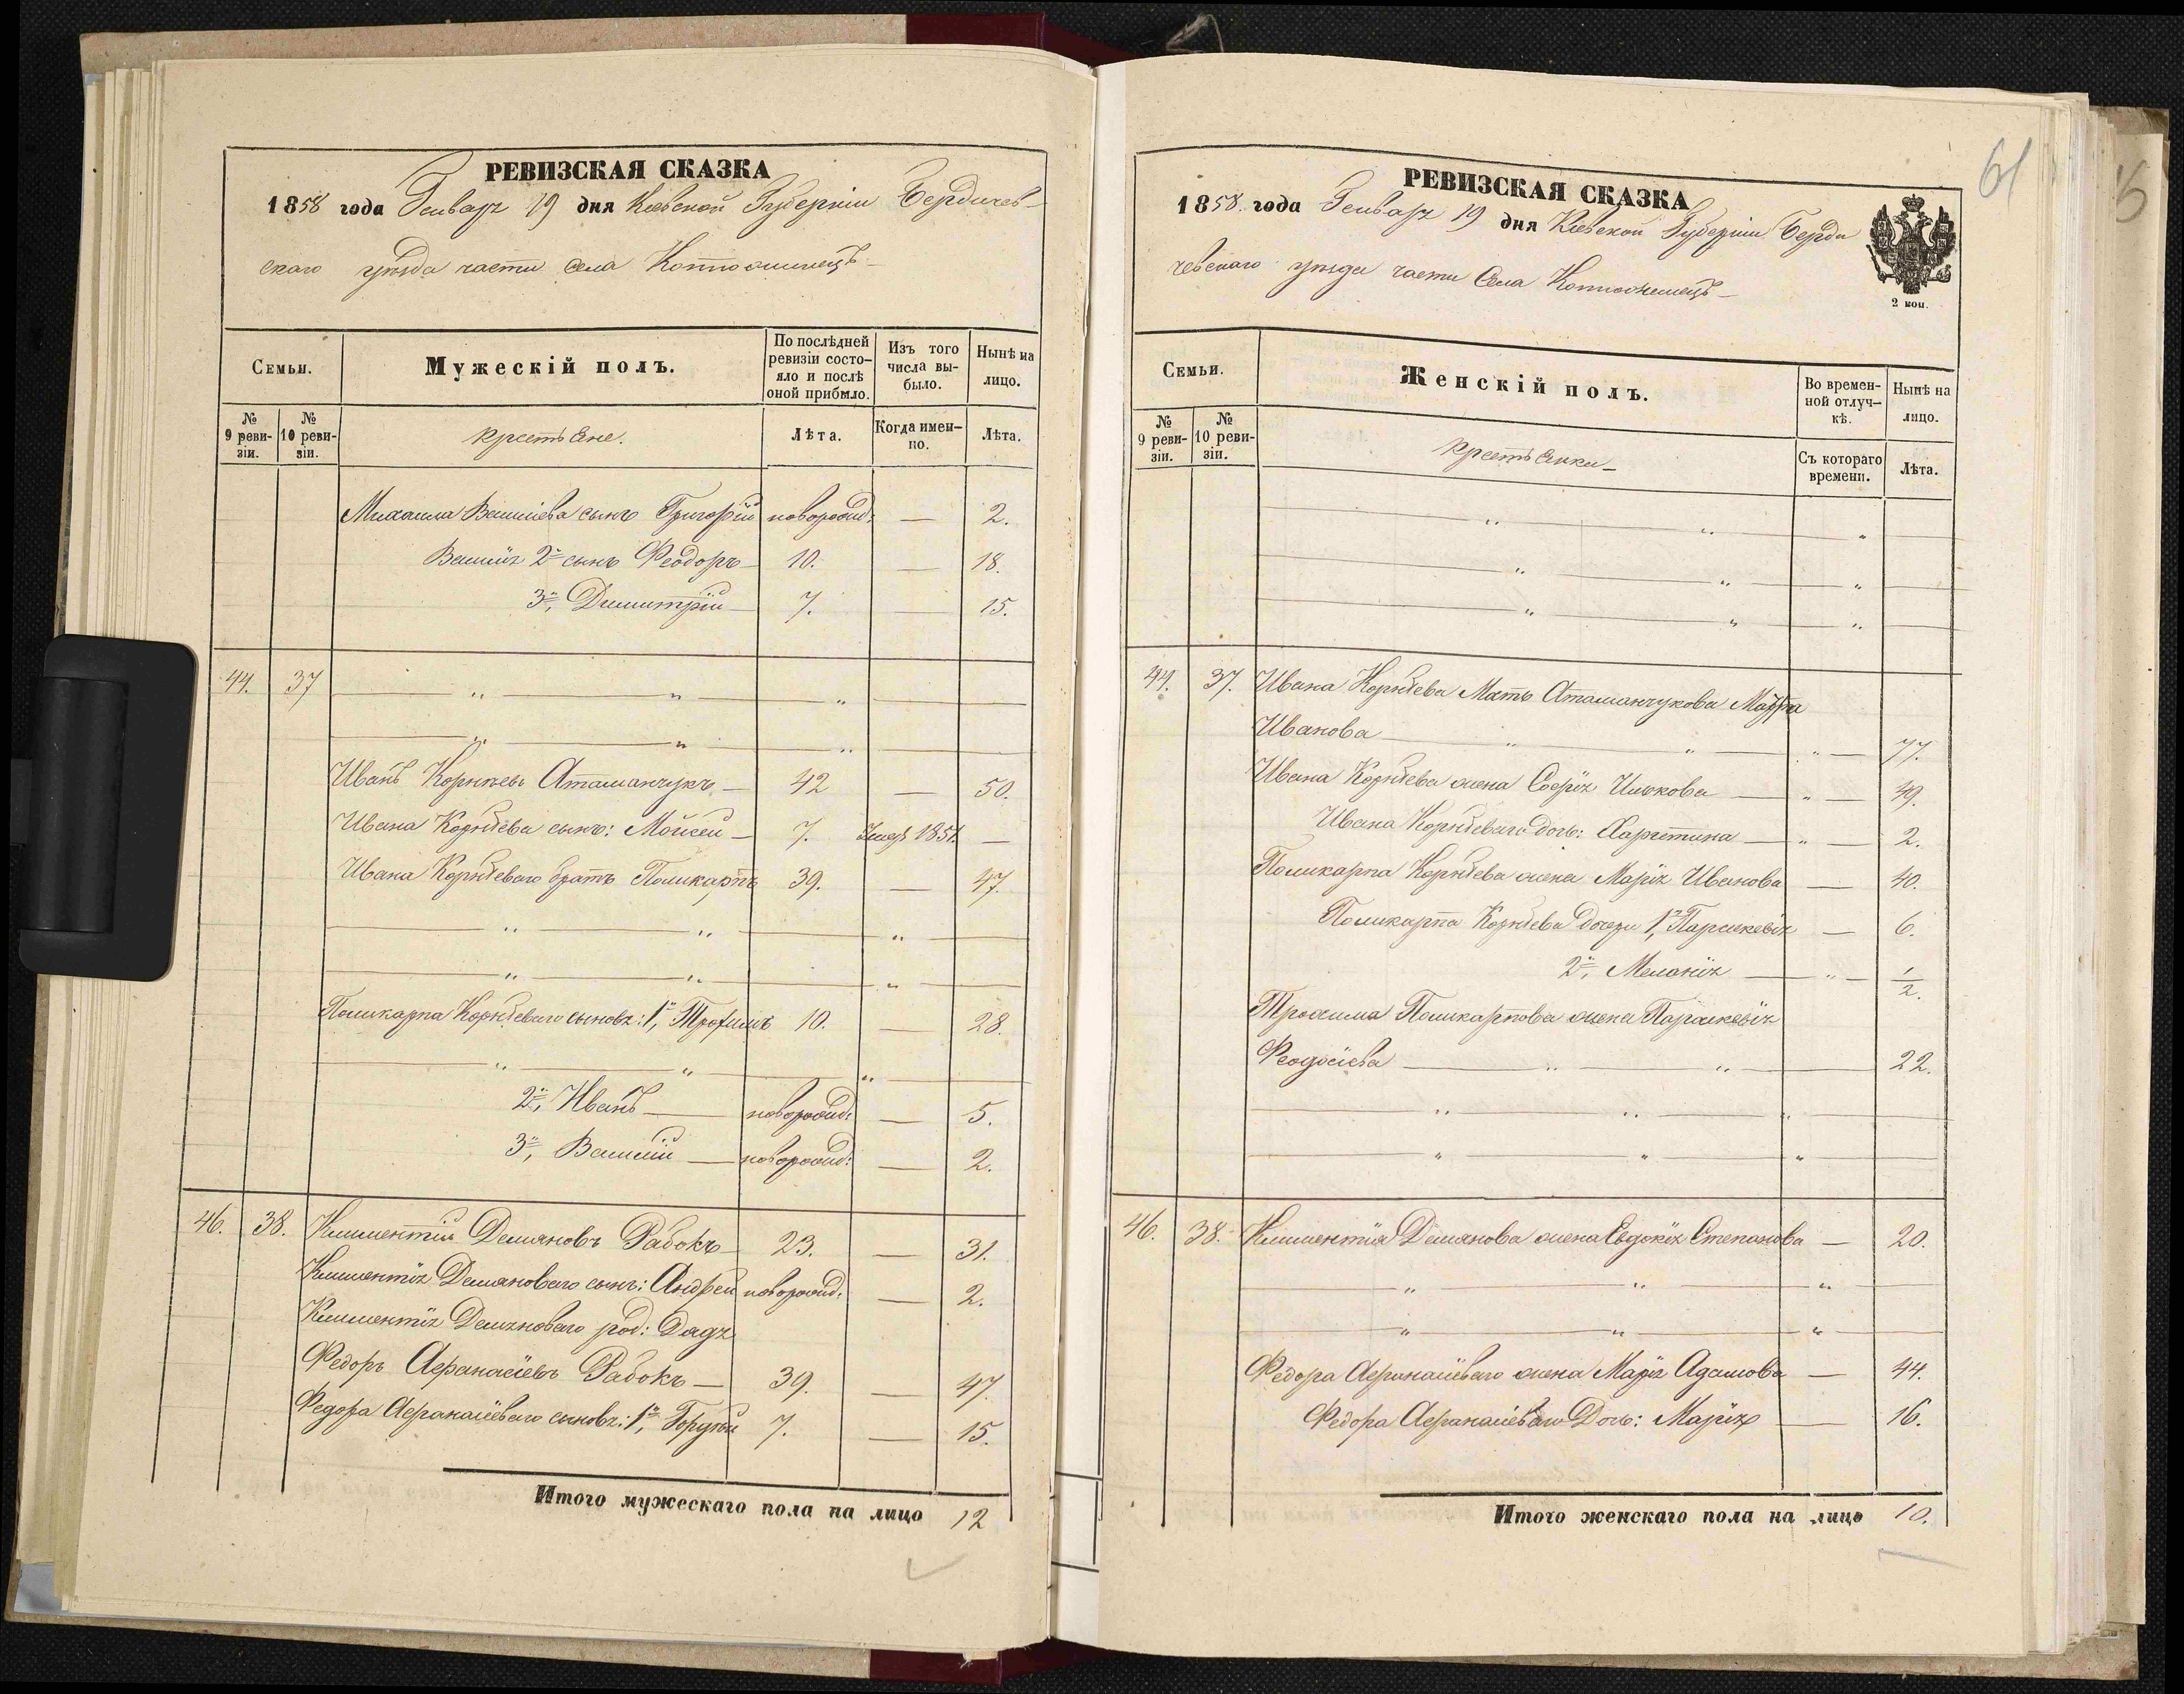 РЕВИЗСКАЯ СКАЗКА
1858 года Генваря 19 дня Кіевской Губерніи Бердичев-
скаго уѣзда части села
Семьи.
Мужескій полъ.
По послѣдней ревизіи состо-яло и послѣ оной прибыло.
Изъ того числа вы-было.
Нынѣ на лицо.
№ 9 реви-зіи.
№ 10 реви-зіи.
Крестьяне.
Лѣта.
Когда имен-но.
Лѣта.
Михаила Василіева сынъ Григорій новорожд: — 2.
Василія 2й сынъ Феодоръ 10. — 18.
3й, Димитрій 7. — 15.
44. 37 — „ — „ — „ —
— „ — „ — „ —
Иванъ Корнѣевъ Атаманчукъ — 42 — 50.
Ивана Корнѣева сынъ: Мойсей — 7. Умеръ 1851. —
Ивана Корнѣеваго братъ Поликарпъ 39. — 47.
— „ — „ — „ —
— „ — „ — „ —
Поликарпа Корнѣеваго сыновья: 1й, Трофимъ 10. — 28.
— „ — „ — „ —
2й, Иванъ — новорожд: — 5.
3й, Василій — новорожд: — 2.
46. 38. Климентій Демяновъ Рабокъ 23. — 31.
Климентія Демяноваго сынъ: Андрей новорожд: — 2.
Климентія Демяноваго род: Дядя
Федоръ Афанасіевъ Рабокъ — 39. — 47.
Федора Афанасіеваго сыновья: 1й, Гордѣй 7. — 15.
Итого мужескаго пола на лицо 12
61
РЕВИЗСКАЯ СКАЗКА
1858. года Генваря 19 дня Кіевской Губерніи Берди
чевскаго уѣзда части Села
2 коп.
Семьи.
Женскій полъ.
Во времен-ной отлуч-кѣ.
Нынѣ на лицо.
№ 9 реви-зіи.
№ 10 реви-зіи.
Крестьянки —
Съ котораго времени.
Лѣта.
— „ — „ — „ —
— „ — „ — „ —
— „ — „ — „ —
44. 37. Ивана Корнѣева Мать Атаманчукова Марфа
Иванова — „ — „ — „ — 77.
Ивана Корнѣева жена Софія Илькова — „ — 49.
Ивана Корнѣеваго дочь: Харитина — „ — 2.
Поликарпа Корнѣева жена Марія Иванова — 40.
Поликарпа Корнѣева дочери 1я, Параскевія — 6.
2я, Меланія — „ — 1/2.
Трофима Поликарпова жена Параскевія
Феодосіева — „ — „ — 22.
— „ — „ — „ —
— „ — „ — „ —
46. 38. Климентія Демянова жена Евдокія Степанова — 20.
— „ — „ — „ —
— „ — „ — „ —
Федора Афанасіеваго жена Марія Адамова — 44.
Федора Афанасіеваго Дочь: Марія — 16.
Итого женскаго пола на лицо 10.